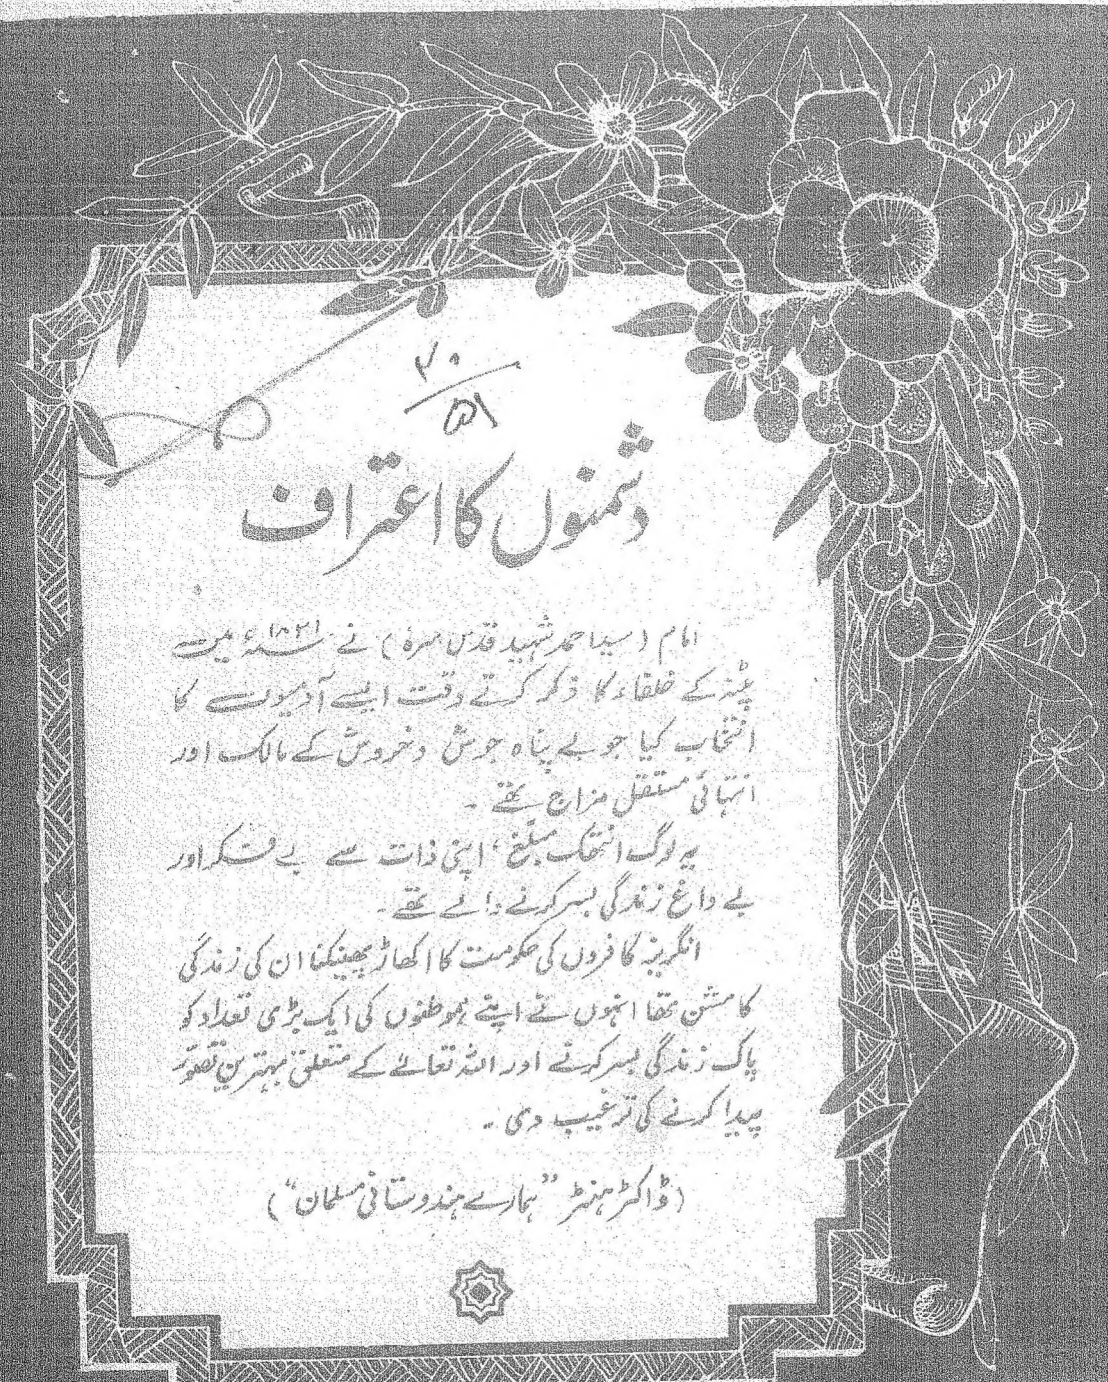 ۴۰
۵۱
دشمنوں کا اعتراف
امام (سید احمد شہید قدس سرہٗ) نے ۱۸۲۱ء میں
پٹنہ کے خلفاء کا ذکر کرتے وقت ایسے آدمیوں کا
انتخاب کیا جو بے پناہ جوش و خروش کے مالک اور
انتہائی مستقل مزاج تھے۔
یہ لوگ انتھک مبلغ، اپنی ذات سے بے فکر اور
بے داغ زندگی بسر کرنے والے تھے۔
انگریز کافروں کی حکومت کا اکھاڑ پھینکنا ان کی زندگی
کا مشن تھا انہوں نے اپنے ہموطنوں کی ایک بڑی تعداد کو
پاک زندگی بسر کرنے اور اللہ تعالےٰ کے متعلق بہترین تصوّر
پیدا کرنے کی ترغیب دی۔
(ڈاکٹر ہنٹر "ہمارے ہندوستانی مسلمان")